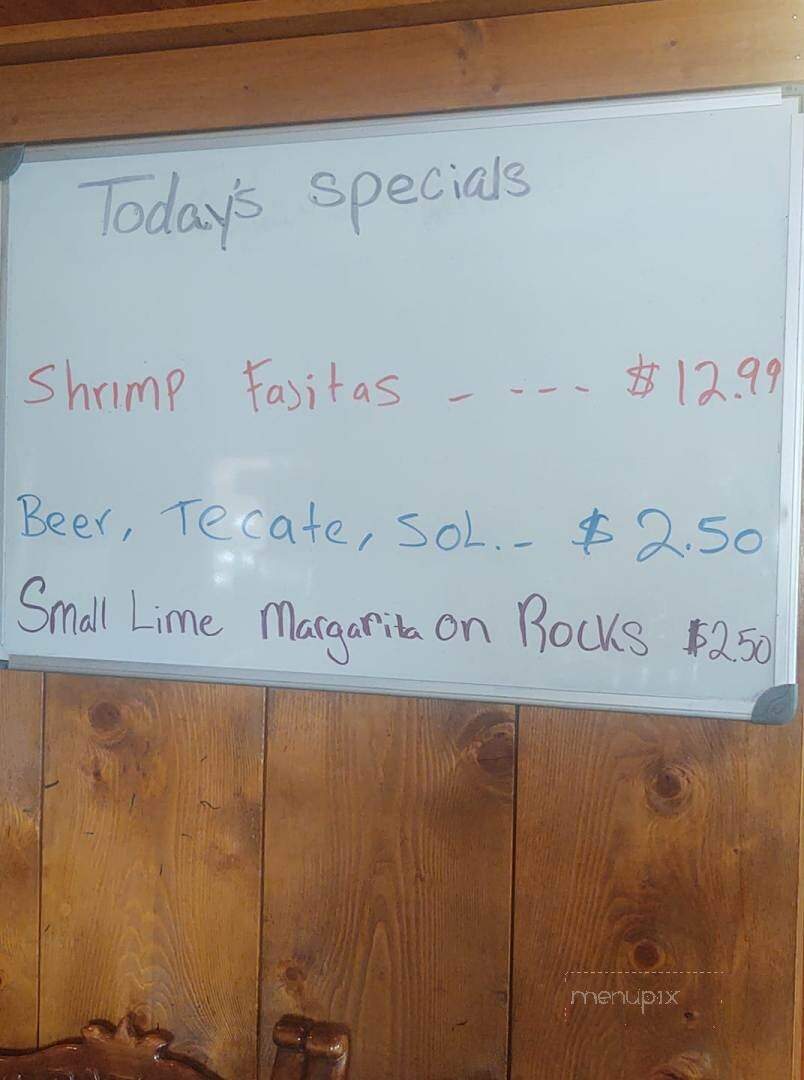 Today's specials
Shrimp Fajitas - --- $12.99
Beer, Tecate, SOL.- $2.50
Small Lime Margarita on Rocks $2.50
menupix